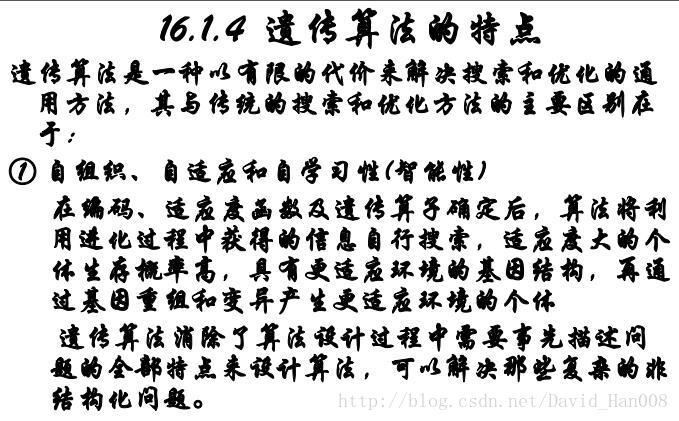 16.1.4 遗传算法的特点
遗传算法是一种以有限的代价来解决搜索和优化的通
用方法，其与传统的搜索和优化方法的主要区别在
于：
① 自组织、自适应和自学习性(智能性)
在编码、适应度函数及遗传算子确定后，算法将利
用进化过程中获得的信息自行搜索，适应度大的个
体生存概率高，具有更适应环境的基因结构，再通
过基因重组和变异产生更适应环境的个体
遗传算法消除了算法设计过程中需要事先描述问
题的全部特点来设计算法，可以解决那些复杂的非
结构化问题。
http://blog.csdn.net/David_Han008